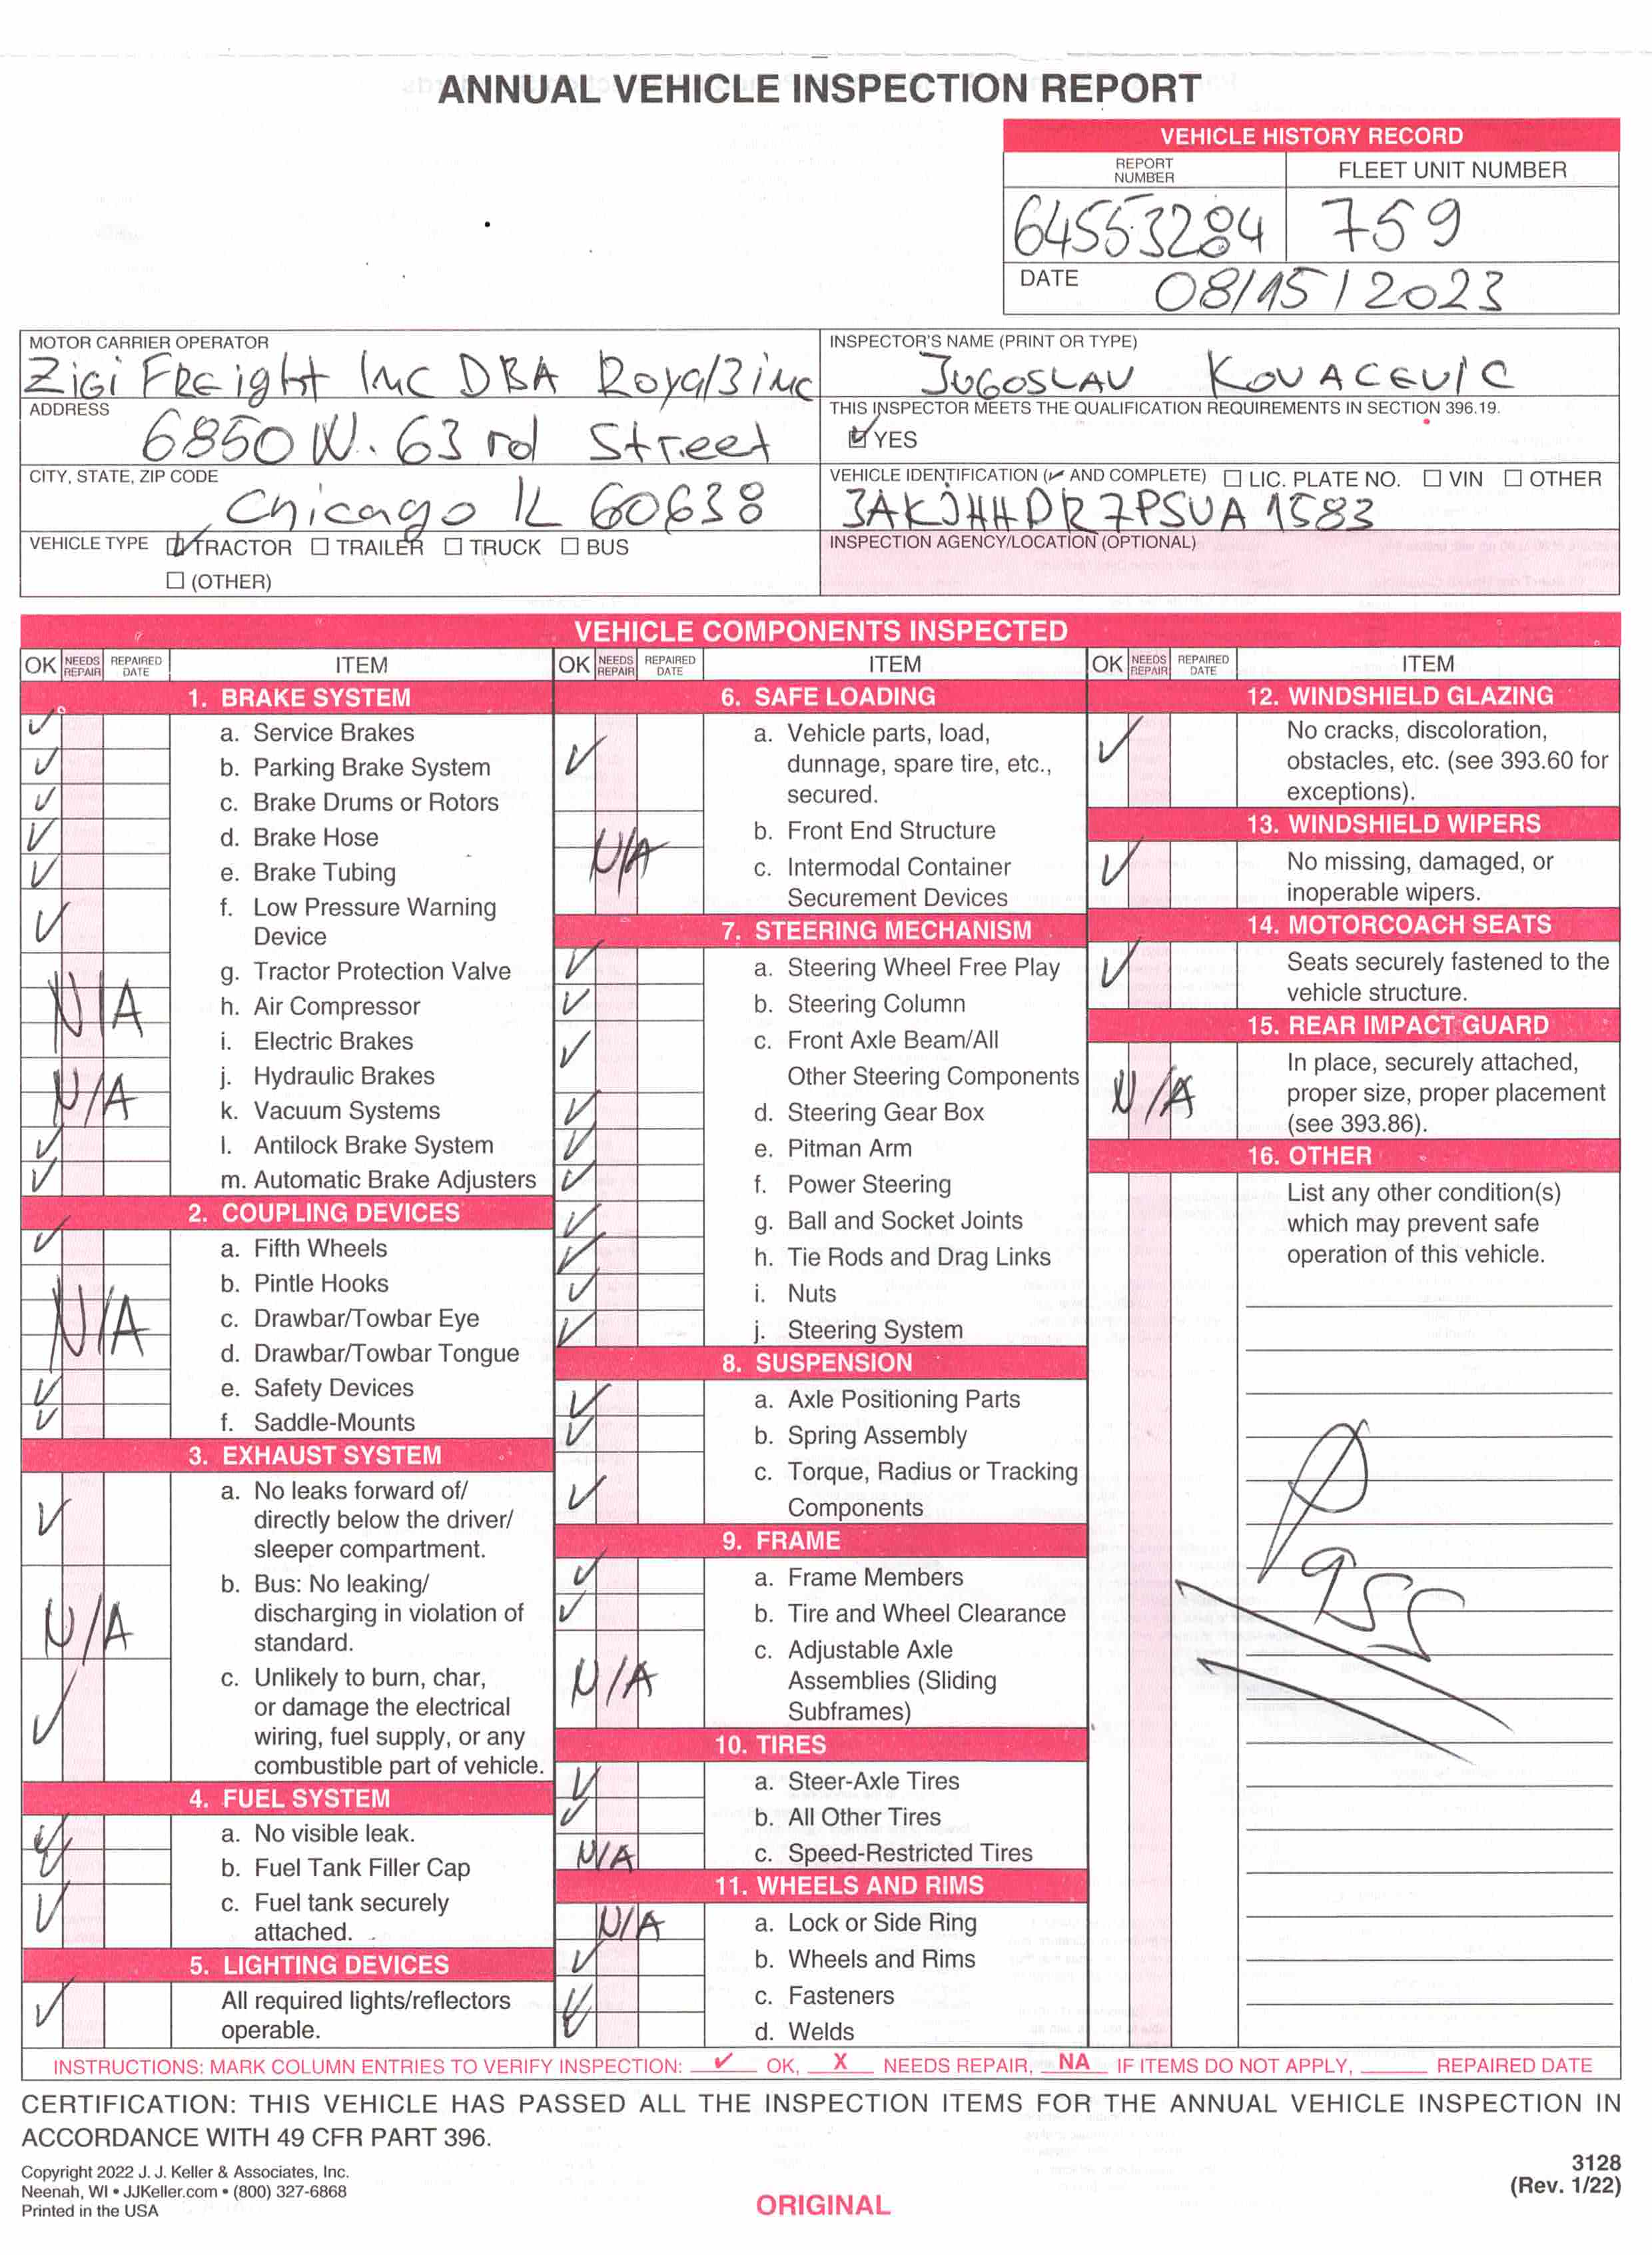 ANNUAL VEHICLE INSPECTION REPORT
VEHICLE HISTORY RECORD
REPORT NUMBER
FLEET UNIT NUMBER
64553284
759
DATE
08/15/2023
MOTOR CARRIER OPERATOR
Zigi Freight Inc DBA Royal3inc
INSPECTOR'S NAME (PRINT OR TYPE)
JUGOSLAV KOVACEVIC
ADDRESS
6850 W. 63 rd Street
THIS INSPECTOR MEETS THE QUALIFICATION REQUIREMENTS IN SECTION 396.19.
☑ YES
CITY, STATE, ZIP CODE
Chicago IL 60638
VEHICLE IDENTIFICATION (✓ AND COMPLETE) ☐ LIC. PLATE NO. ☐ VIN ☐ OTHER
3AKJHHDR7PSUA1583
VEHICLE TYPE ☑ TRACTOR ☐ TRAILER ☐ TRUCK ☐ BUS
☐ (OTHER)
INSPECTION AGENCY/LOCATION (OPTIONAL)
VEHICLE COMPONENTS INSPECTED
OK NEEDS REPAIR REPAIRED DATE ITEM
1. BRAKE SYSTEM
✓ a. Service Brakes
✓ b. Parking Brake System
✓ c. Brake Drums or Rotors
✓ d. Brake Hose
✓ e. Brake Tubing
✓ f. Low Pressure Warning
Device
g. Tractor Protection Valve
N/A h. Air Compressor
i. Electric Brakes
N/A j. Hydraulic Brakes
k. Vacuum Systems
✓ l. Antilock Brake System
✓ m. Automatic Brake Adjusters
2. COUPLING DEVICES
✓ a. Fifth Wheels
b. Pintle Hooks
N/A c. Drawbar/Towbar Eye
d. Drawbar/Towbar Tongue
✓ e. Safety Devices
✓ f. Saddle-Mounts
3. EXHAUST SYSTEM
✓ a. No leaks forward of/
directly below the driver/
sleeper compartment.
N/A b. Bus: No leaking/
discharging in violation of
standard.
✓ c. Unlikely to burn, char,
or damage the electrical
wiring, fuel supply, or any
combustible part of vehicle.
4. FUEL SYSTEM
✓ a. No visible leak.
✓ b. Fuel Tank Filler Cap
✓ c. Fuel tank securely
attached.
5. LIGHTING DEVICES
✓ All required lights/reflectors
operable.
OK NEEDS REPAIR REPAIRED DATE ITEM
6. SAFE LOADING
✓ a. Vehicle parts, load,
dunnage, spare tire, etc.,
secured.
N/A b. Front End Structure
c. Intermodal Container
Securement Devices
7. STEERING MECHANISM
✓ a. Steering Wheel Free Play
✓ b. Steering Column
✓ c. Front Axle Beam/All
Other Steering Components
✓ d. Steering Gear Box
✓ e. Pitman Arm
✓ f. Power Steering
✓ g. Ball and Socket Joints
✓ h. Tie Rods and Drag Links
✓ i. Nuts
✓ j. Steering System
8. SUSPENSION
✓ a. Axle Positioning Parts
✓ b. Spring Assembly
✓ c. Torque, Radius or Tracking
Components
9. FRAME
✓ a. Frame Members
✓ b. Tire and Wheel Clearance
N/A c. Adjustable Axle
Assemblies (Sliding
Subframes)
10. TIRES
✓ a. Steer-Axle Tires
✓ b. All Other Tires
N/A c. Speed-Restricted Tires
11. WHEELS AND RIMS
N/A a. Lock or Side Ring
✓ b. Wheels and Rims
✓ c. Fasteners
✓ d. Welds
OK NEEDS REPAIR REPAIRED DATE ITEM
12. WINDSHIELD GLAZING
✓ No cracks, discoloration,
obstacles, etc. (see 393.60 for
exceptions).
13. WINDSHIELD WIPERS
✓ No missing, damaged, or
inoperable wipers.
14. MOTORCOACH SEATS
✓ Seats securely fastened to the
vehicle structure.
15. REAR IMPACT GUARD
N/A In place, securely attached,
proper size, proper placement
(see 393.86).
16. OTHER
List any other condition(s)
which may prevent safe
operation of this vehicle.
Pass
INSTRUCTIONS: MARK COLUMN ENTRIES TO VERIFY INSPECTION: ✓ OK, X NEEDS REPAIR, NA IF ITEMS DO NOT APPLY, ____ REPAIRED DATE
CERTIFICATION: THIS VEHICLE HAS PASSED ALL THE INSPECTION ITEMS FOR THE ANNUAL VEHICLE INSPECTION IN
ACCORDANCE WITH 49 CFR PART 396.
Copyright 2022 J. J. Keller & Associates, Inc.
Neenah, WI • JJKeller.com • (800) 327-6868
Printed in the USA
ORIGINAL
3128
(Rev. 1/22)